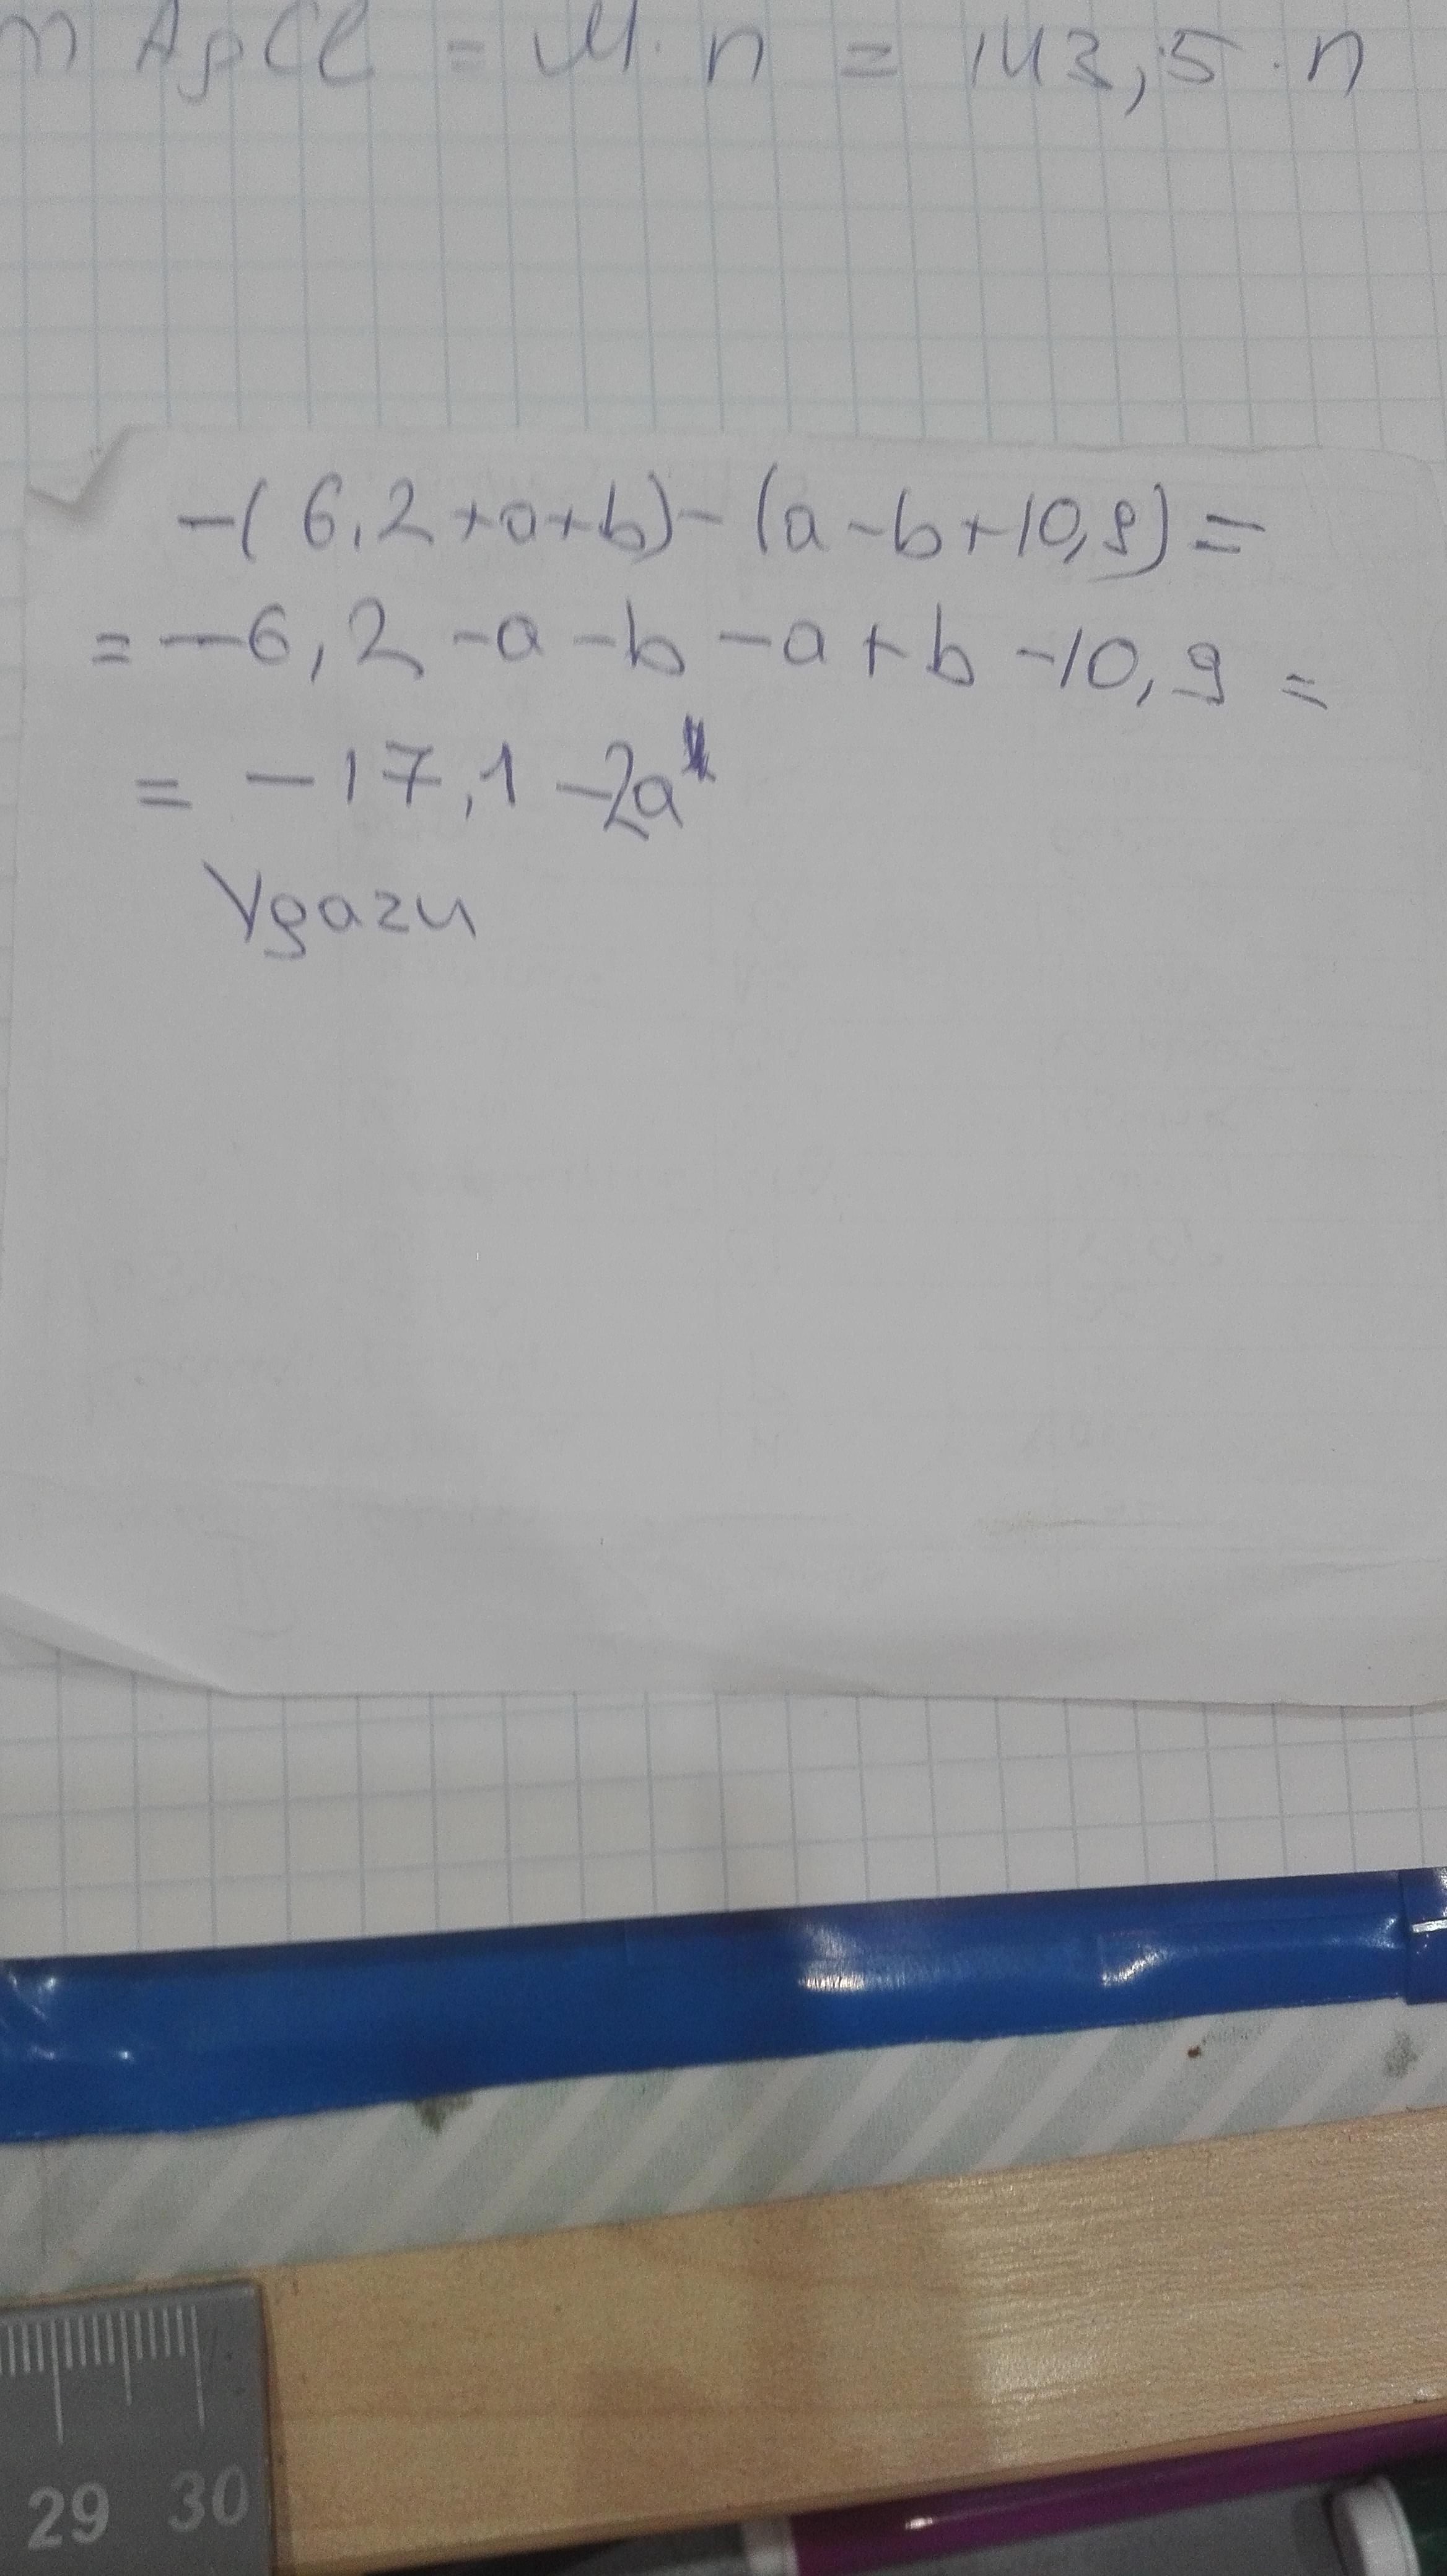 m AgCl = M · n = 143,5 · n
-(6,2+a+b)-(a-b+10,9)=
=-6,2-a-b-a+b-10,9=
=-17,1-2a
Удачи
29 30